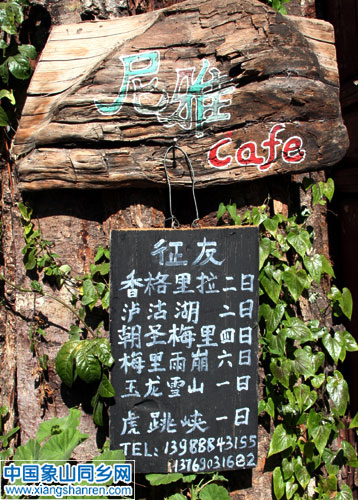 尼雅
cafe
征友
香格里拉二日
泸沽湖 二日
朝圣梅里四日
梅里雨崩六日
玉龙雪山一日
虎跳峡一日
TEL: 13988843155
中国象山同乡网
www.xiangshanren.com